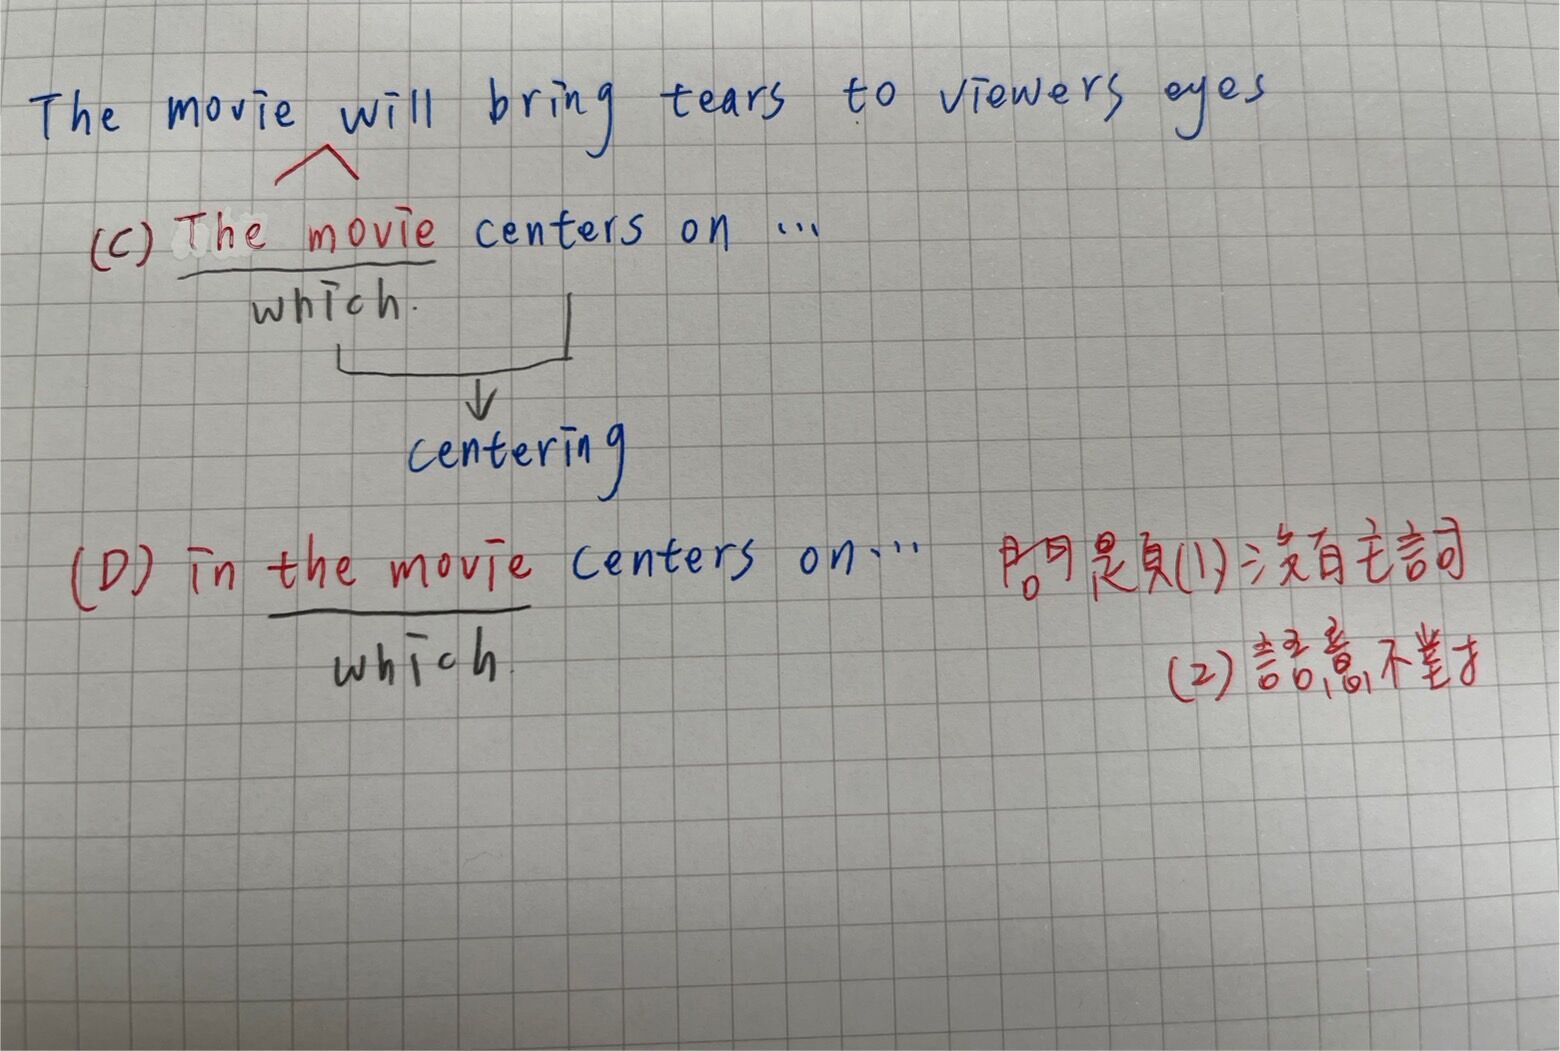 The movie will bring tears to viewers eyes
(C) The movie centers on ...
which.
centering
(D) in the movie centers on... 問題(1)沒有主詞
which.
(2) 語意不對